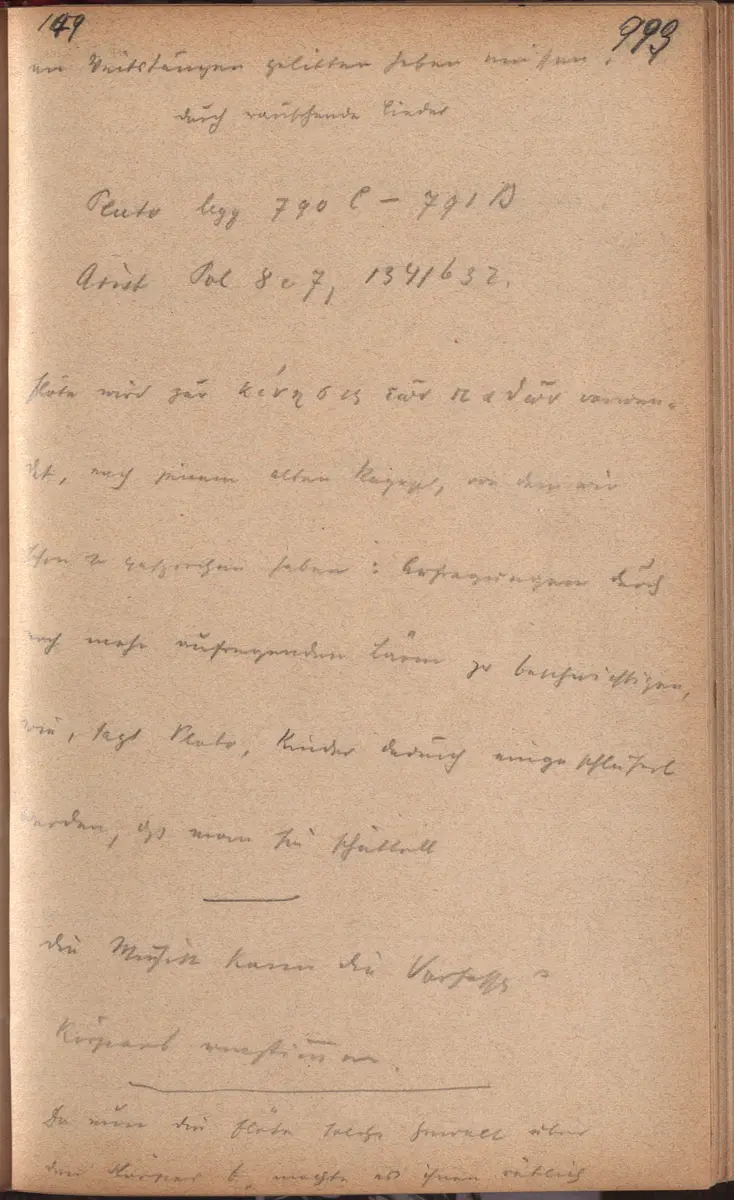 149 993
an Veitstänzen gelitten haben müssen.
durch rauschende Lieder
Plato legg 790 C – 791 B
Arist Pol 8 c 7, 1341b32.
Flöte wird zur κίνησις τῶν παθῶν verwen-
det, nach jenem alten von dem wir
schon gesprochen haben: Aufregungen durch
noch mehr aufregenden Lärm zu beschwichtigen,
wie, sagt Plato, Kinder dadurch eingeschläfert
werden, dß man sie schüttelt
Die Musik kann die
Körpers umstimmen.
Da nun die Flöte solche Gewalt über
den Körper b, machte es ihnen